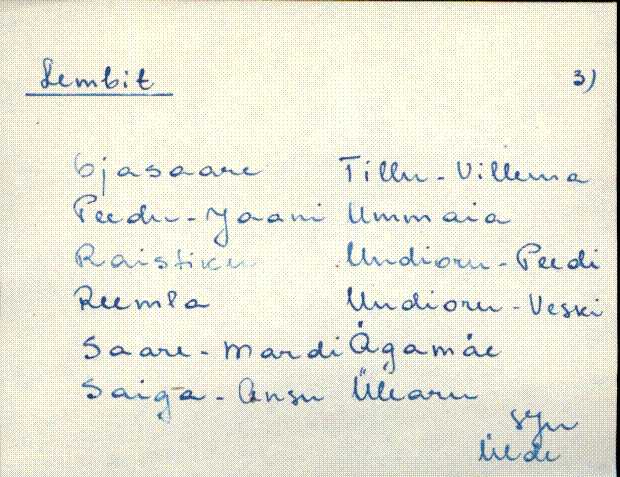 Lembit 3)
Ojasaare Tillu-Villema
Peedu-Jaani Ummaia
Raistiku Undioru-Peedi
Reemla Undioru-Veski
Saare-Mardi Ägamäe
Saiga-Ansu Ülearu
syn
Ülde